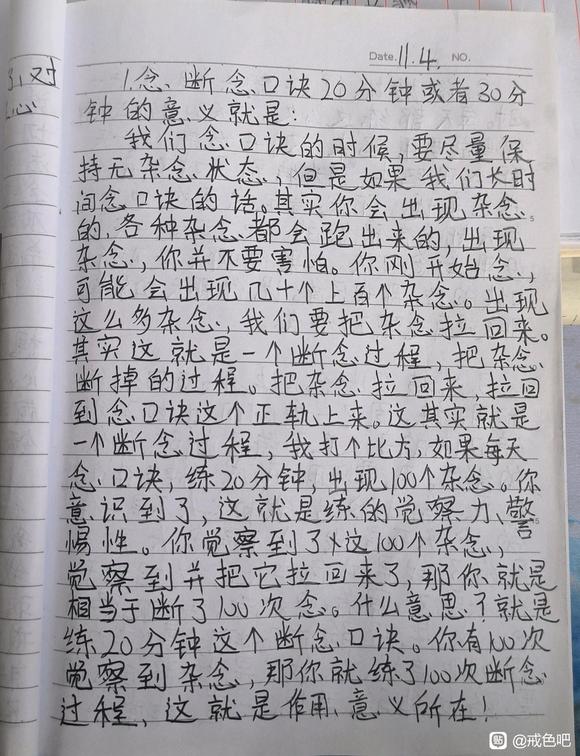 Date. 11.4. NO.
1.念、断念口诀20分钟或者30分
钟的意义就是:
我们念口诀的时候,要尽量保
持无杂念状态,但是如果我们长时
间念口诀的话。其实你会出现杂念
的,各种杂念都会跑出来的,出现
杂念,你并不要害怕。你刚开始念,
可能会出现几十个上百个杂念。出现
这么多杂念,我们要把杂念拉回来。
其实这就是一个断念过程,把杂念
断掉的过程。把杂念拉回来,拉回
到念口诀这个正轨上来。这其实就是
一个断念过程,我打个比方,如果每天
念口诀,练20分钟,出现100个杂念。你
意识到了,这就是练的觉察力、警
惕性。你觉察到了这100个杂念,
觉察到并把它拉回来了,那你就是
相当于断了100次念。什么意思?就是
练20分钟这个断念口诀。你有100次
觉察到杂念,那你就练了100次断念
过程,这就是作用、意义所在!
对
心
贴 @戒色吧